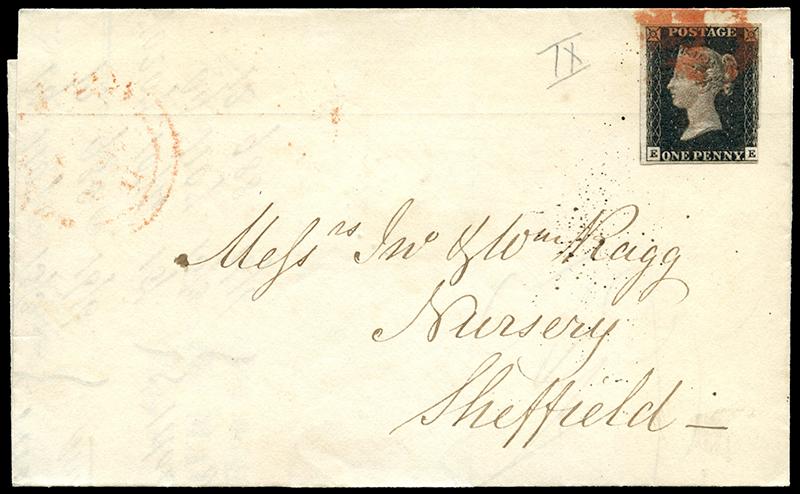 II
POSTAGE
E ONE PENNY E
Messrs Jno & Wm Ragg
Nursery
Sheffield —